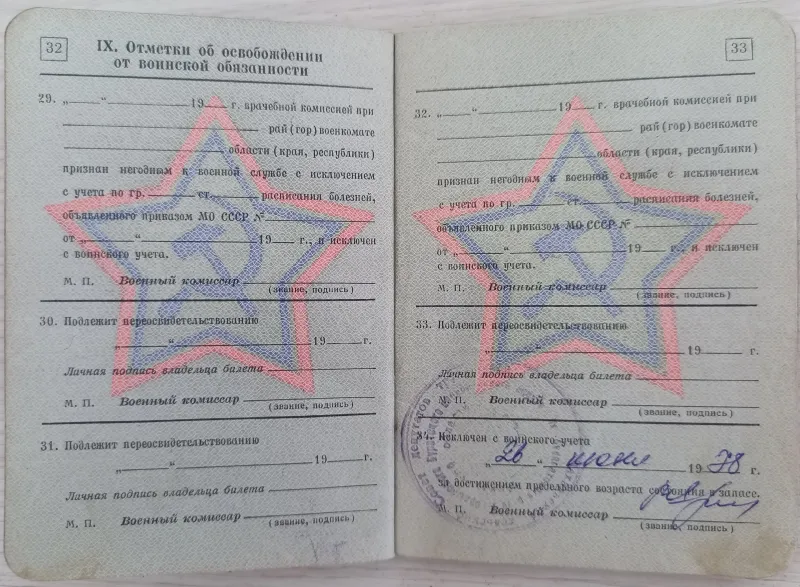 32
IX. Отметки об освобождении
от воинской обязанности
29. „ “ 19 г. врачебной комиссией при
рай (гор) военкомате
области (края, республики)
признан негодным к военной службе с исключением
с учета по гр. ст. расписания болезней,
объявленного приказом МО СССР №
от „ “ 19 г., и исключен
с воинского учета.
М. П. Военный комиссар
(звание, подпись)
30. Подлежит переосвидетельствованию
„ “ 19 г.
Личная подпись владельца билета
М. П. Военный комиссар
(звание, подпись)
31. Подлежит переосвидетельствованию
„ “ 19 г.
Личная подпись владельца билета
М. П. Военный комиссар
(звание, подпись)
33
32. „ “ 19 г. врачебной комиссией при
рай (гор) военкомате
области (края, республики)
признан негодным к военной службе с исключением
с учета по гр. ст. расписания болезней,
объявленного приказом МО СССР №
от „ “ 19 г., и исключен
с воинского учета.
М. П. Военный комиссар
(звание, подпись)
33. Подлежит переосвидетельствованию
„ “ 19 г.
Личная подпись владельца билета
М. П. Военный комиссар
(звание, подпись)
34. Исключен с воинского учета
„26“ июня 1978 г.
за достижением предельного возраста состояния в запасе.
М. П. Военный комиссар
(звание, подпись)
депутатов